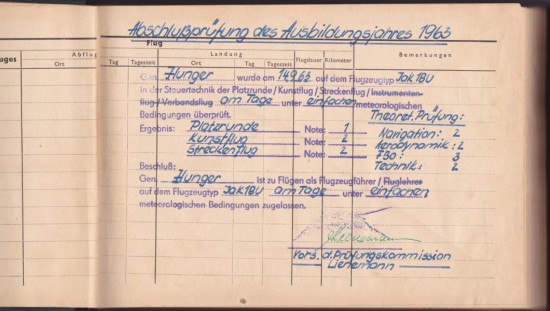 Abschlußprüfung des Ausbildungsjahres 1963
Flug
uges Abflug Landung Flugdauer Kilometer Bemerkungen
Ort Tag Tageszeit Ort Tag Tageszeit
Gen. Zlunger wurde am 14.9.63 auf dem Flugzeugtyp Jak18U
in der Steuertechnik der Platzrunde / Kunstflug / Streckenflug / Instrumenten-
flug / Verbandsflug am Tage unter einfachen meteorologischen
Bedingungen überprüft. Theoret. Prüfung:
Ergebnis: Platzrunde Note: 1 Navigation: 2
Kunstflug Note: 2 Aerodynamik: 2
Streckenflug Note: 2 FBO: 3
Technik: 2
Beschluß:
Gen. Zlunger ist zu Flügen als Flugzeugführer / Fluglehrer
auf dem Flugzeugtyp Jak18U am Tage unter einfachen
meteorologischen Bedingungen zugelassen.
Vors. d. Prüfungskommission
Lienemann